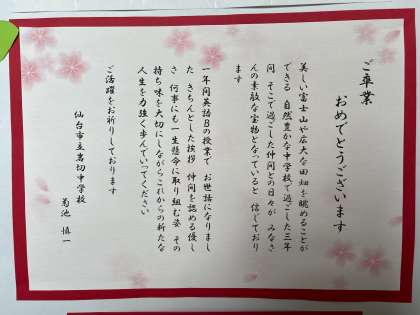 ご卒業
おめでとうございます
美しい富士山や広大な田畑を眺めることが
できる 自然豊かな中学校で過ごした三年
間 そこで過ごした仲間との日々が みなさ
んの素敵な宝物となっていると 信じており
ます
一年間英語Bの授業で お世話になりまし
た きちんとした挨拶 仲間を認める優し
さ 何事にも一生懸命に取り組む姿 その
持ち味を大切にしながらこれからの新たな
人生を力強く歩んでいってください
ご活躍をお祈りしております
仙台市立岩切中学校
菊池 慎一